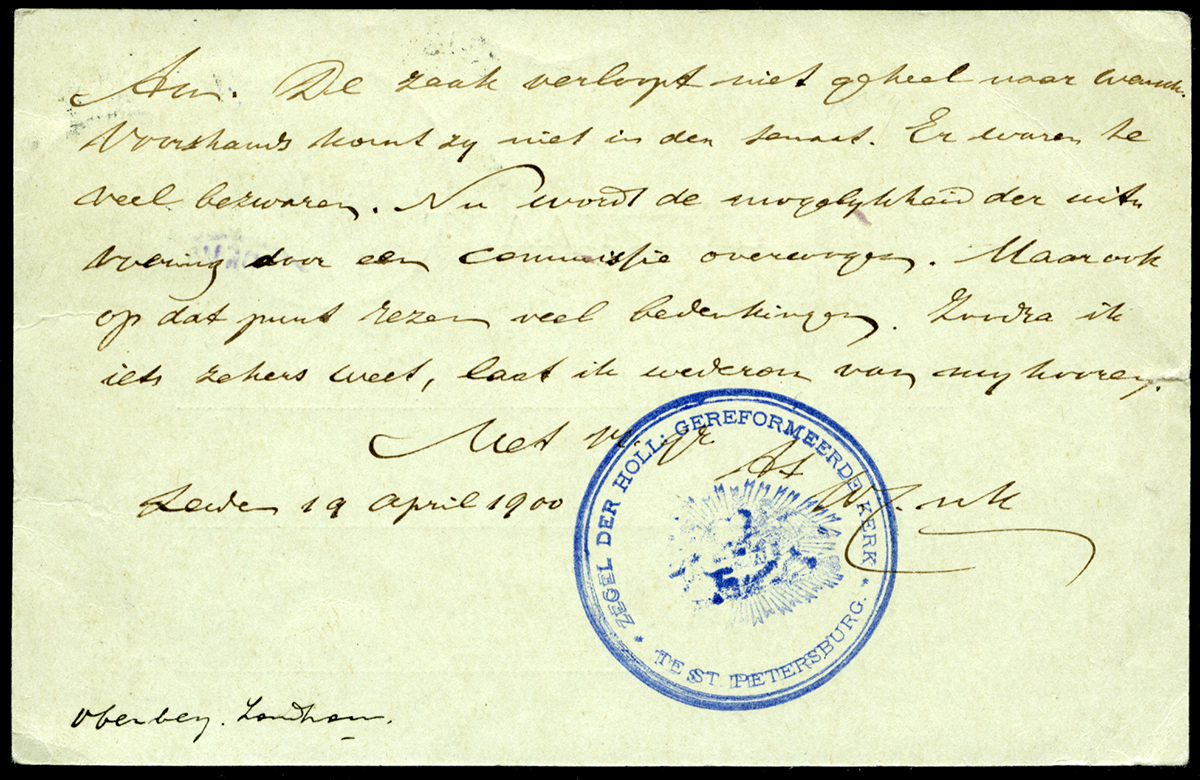 Am. De zaak verloopt niet geheel naar wensch.
Voorshands komt zy niet in den senaat. Er waren te
veel bezwaren. Nu wordt de mogelykheid der uit-
voering door een commissie overwogen. Maar ook
op dat punt rezen veel bedenkingen. Zoodra ik
iets zekers weet, laat ik wederom van my hooren.
Met vr. gr.
Leiden 19 April 1900
ZEGEL DER HOLL: GEREFORMEERDE KERK
* TE ST PETERSBURG. *